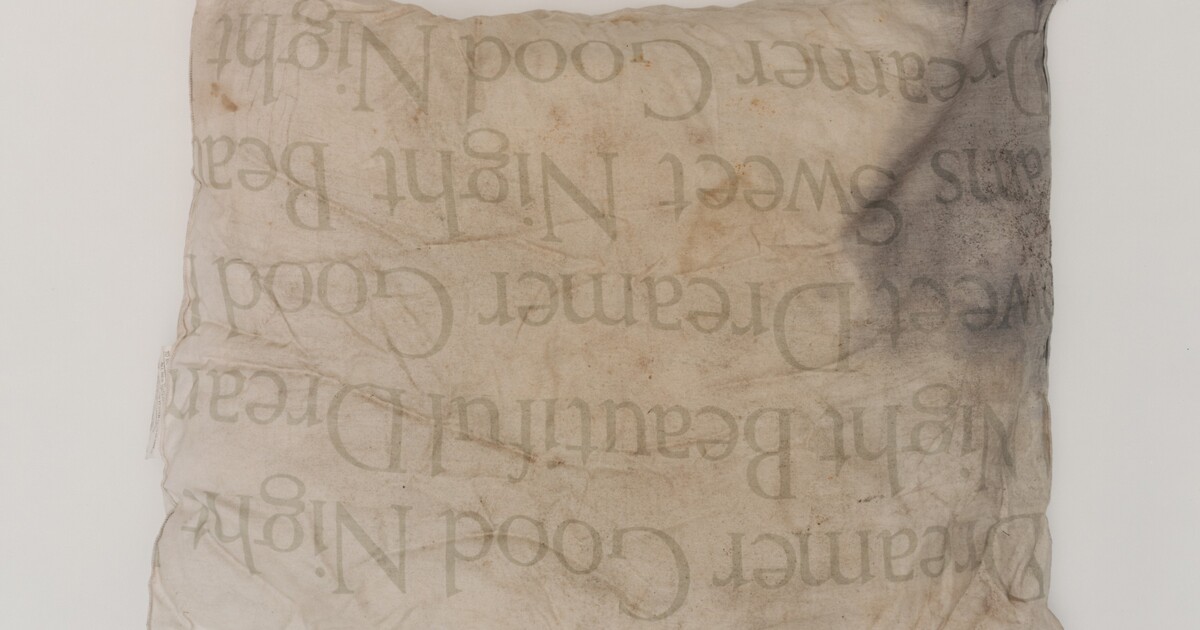 Dreamer Good Night
Night Beautiful Dream
weet Dreamer Good N
ams Sweet Night Beau
Dreamer Good Night